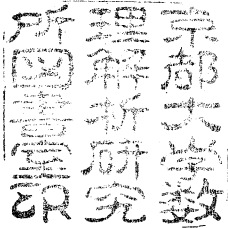 京都大学数
理解析研究
所圖書室印